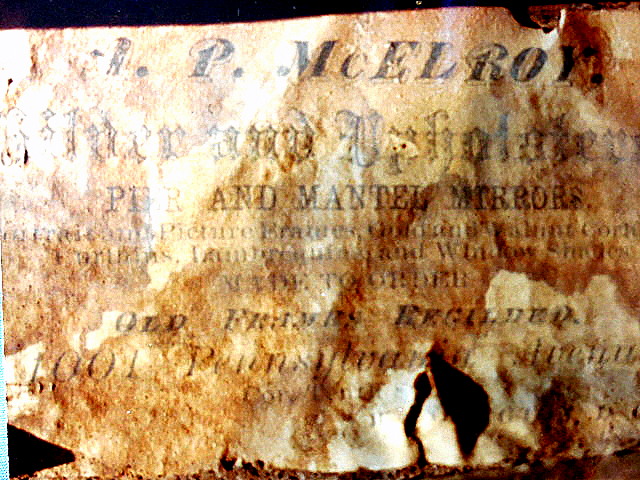 P. McELROY.
Gilder and Upholsterer
PIER AND MANTEL MIRRORS.
Portrait and Picture Frames, Gold and Walnut Cor
Curtains, Lambrequins and Window Shades
MADE TO ORDER
OLD FRAMES REGILDED.
1001 Pennsylvania Avenue
Cor.